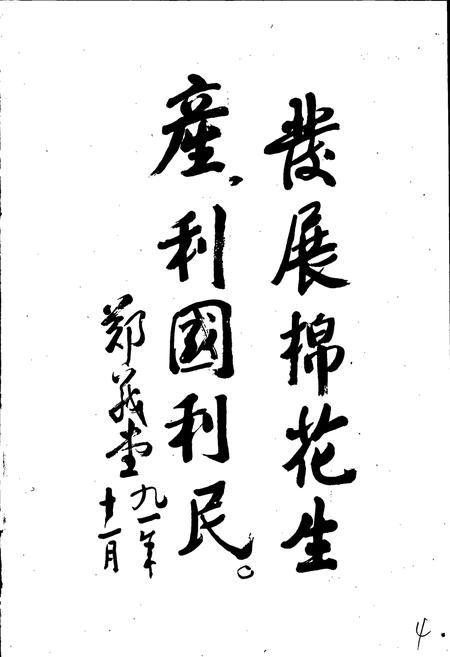 發展棉花生
産、利國利民。
鄭義堂
九一年
十一月
4